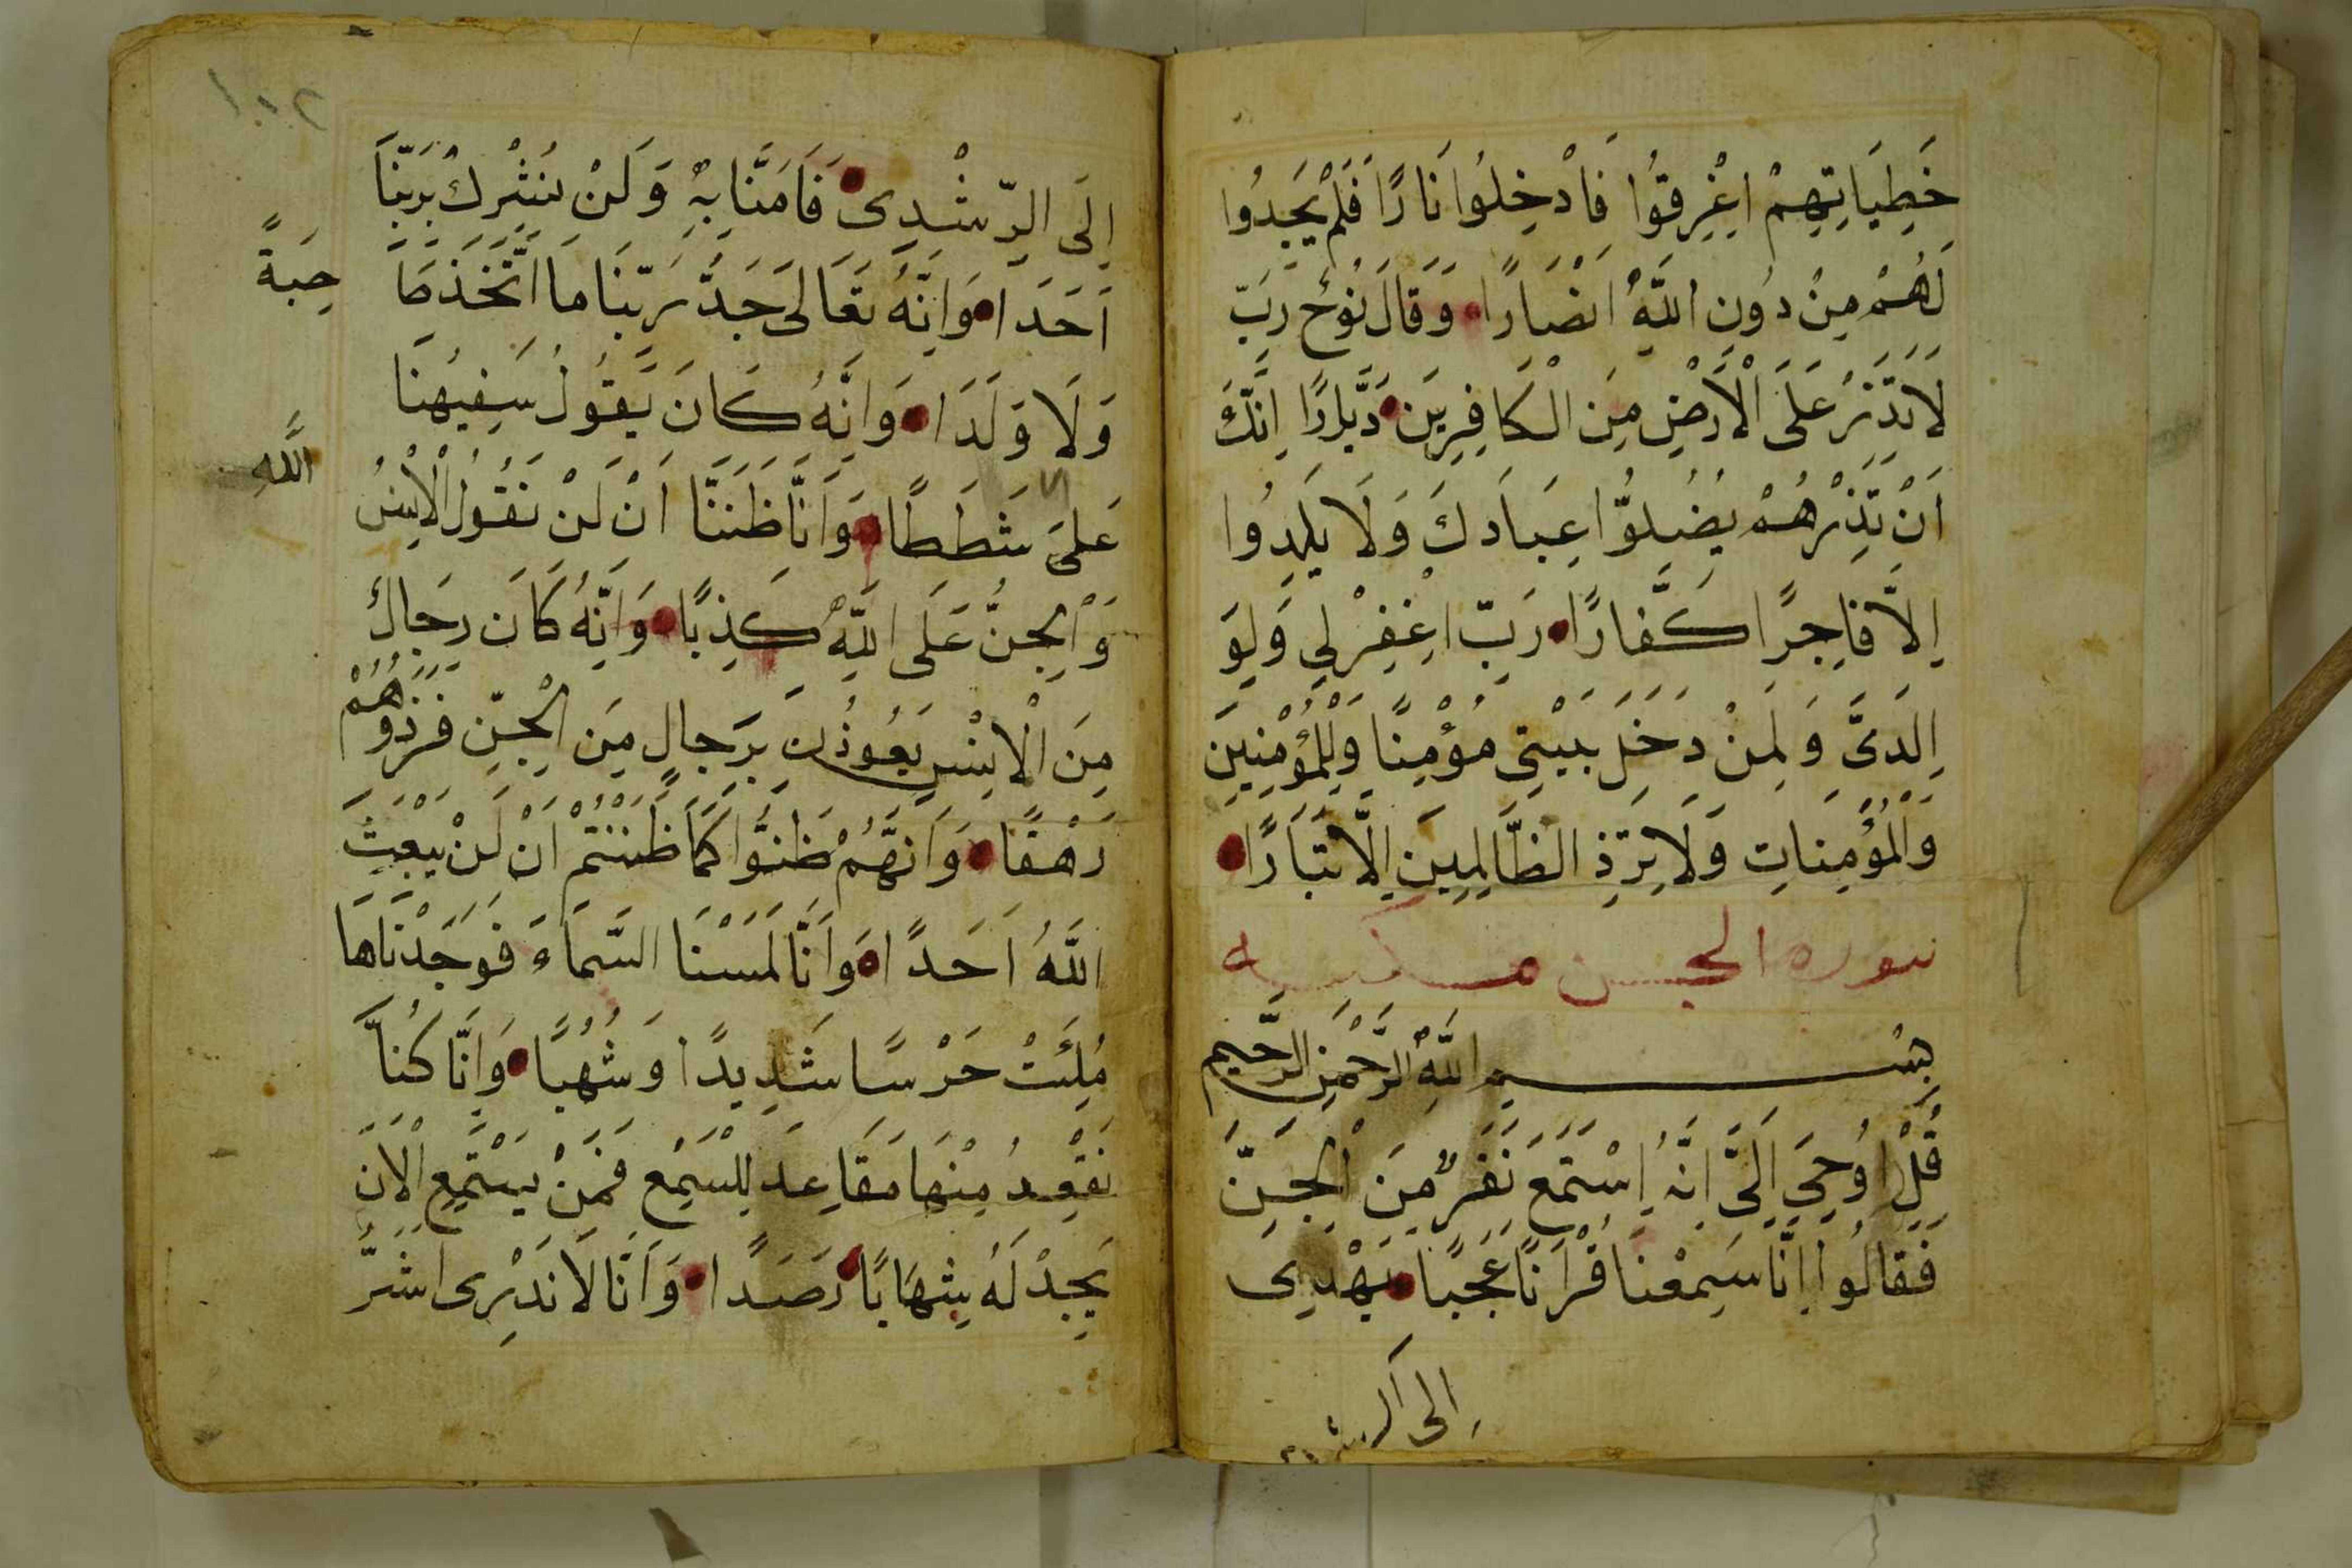 خَطِيَاتِهِمْ اغْرِقُوا فَادْخِلُوا نَارًا فَلَمْ يَجِدُوا
لَهُمْ مِنْ دُونِ اللَّهِ انْصَارًا وَقَالَ نُوْحُ رَبِّ
لَا تَذَرْ عَلَى الْاَرْضِ مِنَ الْكَافِرِيَن دَيَّارًا اِنَّكَ
اَنْ تَذَرْهُمْ يُضِلُّوا عِبَادَكَ وَلَا يَلِدُوا
اِلَّا فَاجِرًا كَفَّارًا رَبِّ اغْفِرْلِي وَلِوَ
اِلَدَىَّ وَلِمَنْ دَخَلَ بَيْتِى مُؤْمِنًا وَلِلْمُؤْمِنِيَن
وَالْمُؤْمِنَاتِ وَلَا تَزِذِ الظَّالِمِيَن اِلَّا تَبَارًا
سوره الجن مكيه
بِسْمِ اللَّهِ الرَّحْمَنِ الرَّحِيمِ
قُلْ اُوحِيَ اِلَىَّ انَّهُ اِسْتَمَعَ نَفَرٌ مِنَ الْجِنِّ
فَقَالُوا اِنَّا سَمِعْنَا قُرْاَنًا عَجَبًا يَهْدِى
اِلى الرشد
١٠٢
اِلَى الرّشْدِى فَامَنَّا بِهِ وَلَنْ نُشْرِكْ بِرَبِّنَا
اَحَدَا وَانَّهُ تَعَالَى جَدُّ رَبِّنَا مَا اتَّخَذَ صَا
حِبَةً
وَلَا وَلَدَا وَانَّهُ كَانَ يَقُولُ سَفِيهُنَا
عَلىَ شَطَطًا وَاَنَّا ظَنَنَّا اَنْ لَنْ تَقُولَ الْاِنْسُ
اللَّهِ
وَالْجِنُّ عَلَى اللَّهِ كَذِبًا وَاَنَّهُ كَانَ رِجَالٌ
مِنَ الْاِنْسِ يَعُوذُنَ بِرِجَالٍ مِنَ الْجِنِّ فَزَدُوهُمْ
رَهَقًا وَاَنَّهُمْ ظَنُّوا كَمَا ظَنَنْتُمْ اَنْ لَنْ يَبْعَثَ
اللَّهُ اَحَدًا وَاَنَّا لَمَسْنَا السَّمَاءَ فَوَجَدْنَاهَا
مُلِئَتْ حَرْسًا شَدِيدًا وَشُهُبًا وَاَنَّا كُنَّا
نَقْعُدُ مِنْهَا مَقَاعِدَ لِلسَّمْعِ فَمَنْ يَسْتَمِعِ الْاَنَ
يَجِدْ لَهُ شِهَابًا رَصَدًا وَاَنَّا لَا نَدْرِى اشَرُّ